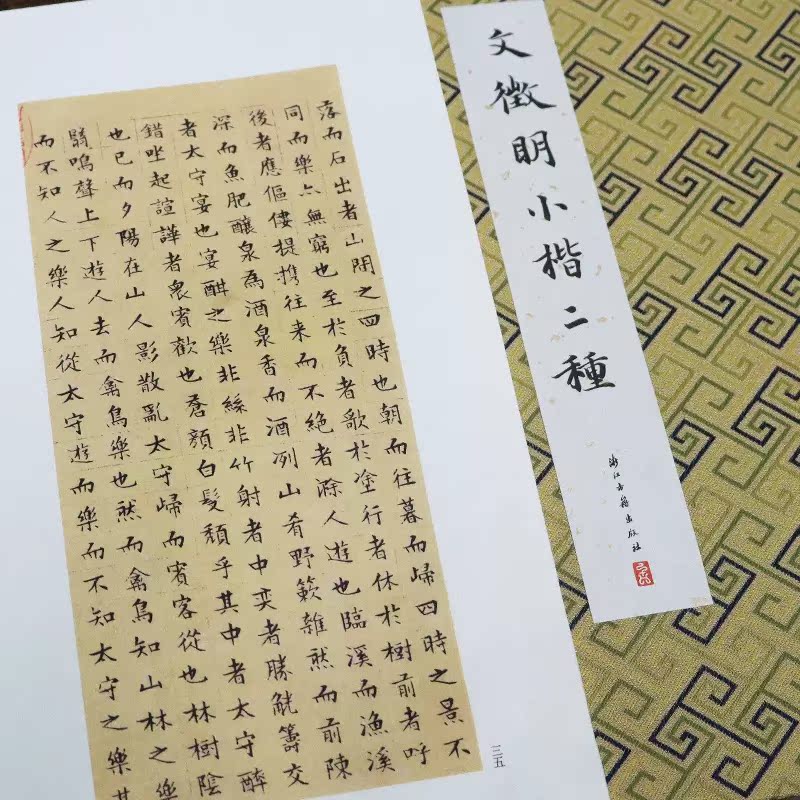 文徵明小楷二種
浙江古籍出版社
落而石出者山間之四時也朝而往暮而歸四時之景不
同而樂亦無窮也至於負者歌於塗行者休於樹前者呼
後者應傴僂提携往来而不絕者滁人遊也臨溪而漁溪
深而魚肥釀泉為酒泉香而酒冽山肴野蔌雜然而前陳
者太守宴也宴酣之樂非絲非竹射者中奕者勝觥籌交
錯坐起諠譁者衆賓歡也蒼顏白髮頹乎其中者太守醉
也已而夕陽在山人影散亂太守歸而賓客從也林樹陰
翳鳴聲上下遊人去而禽鳥樂也然而禽鳥知山林之樂
而不知人之樂人知從太守遊而樂而不知太守之樂其
三五